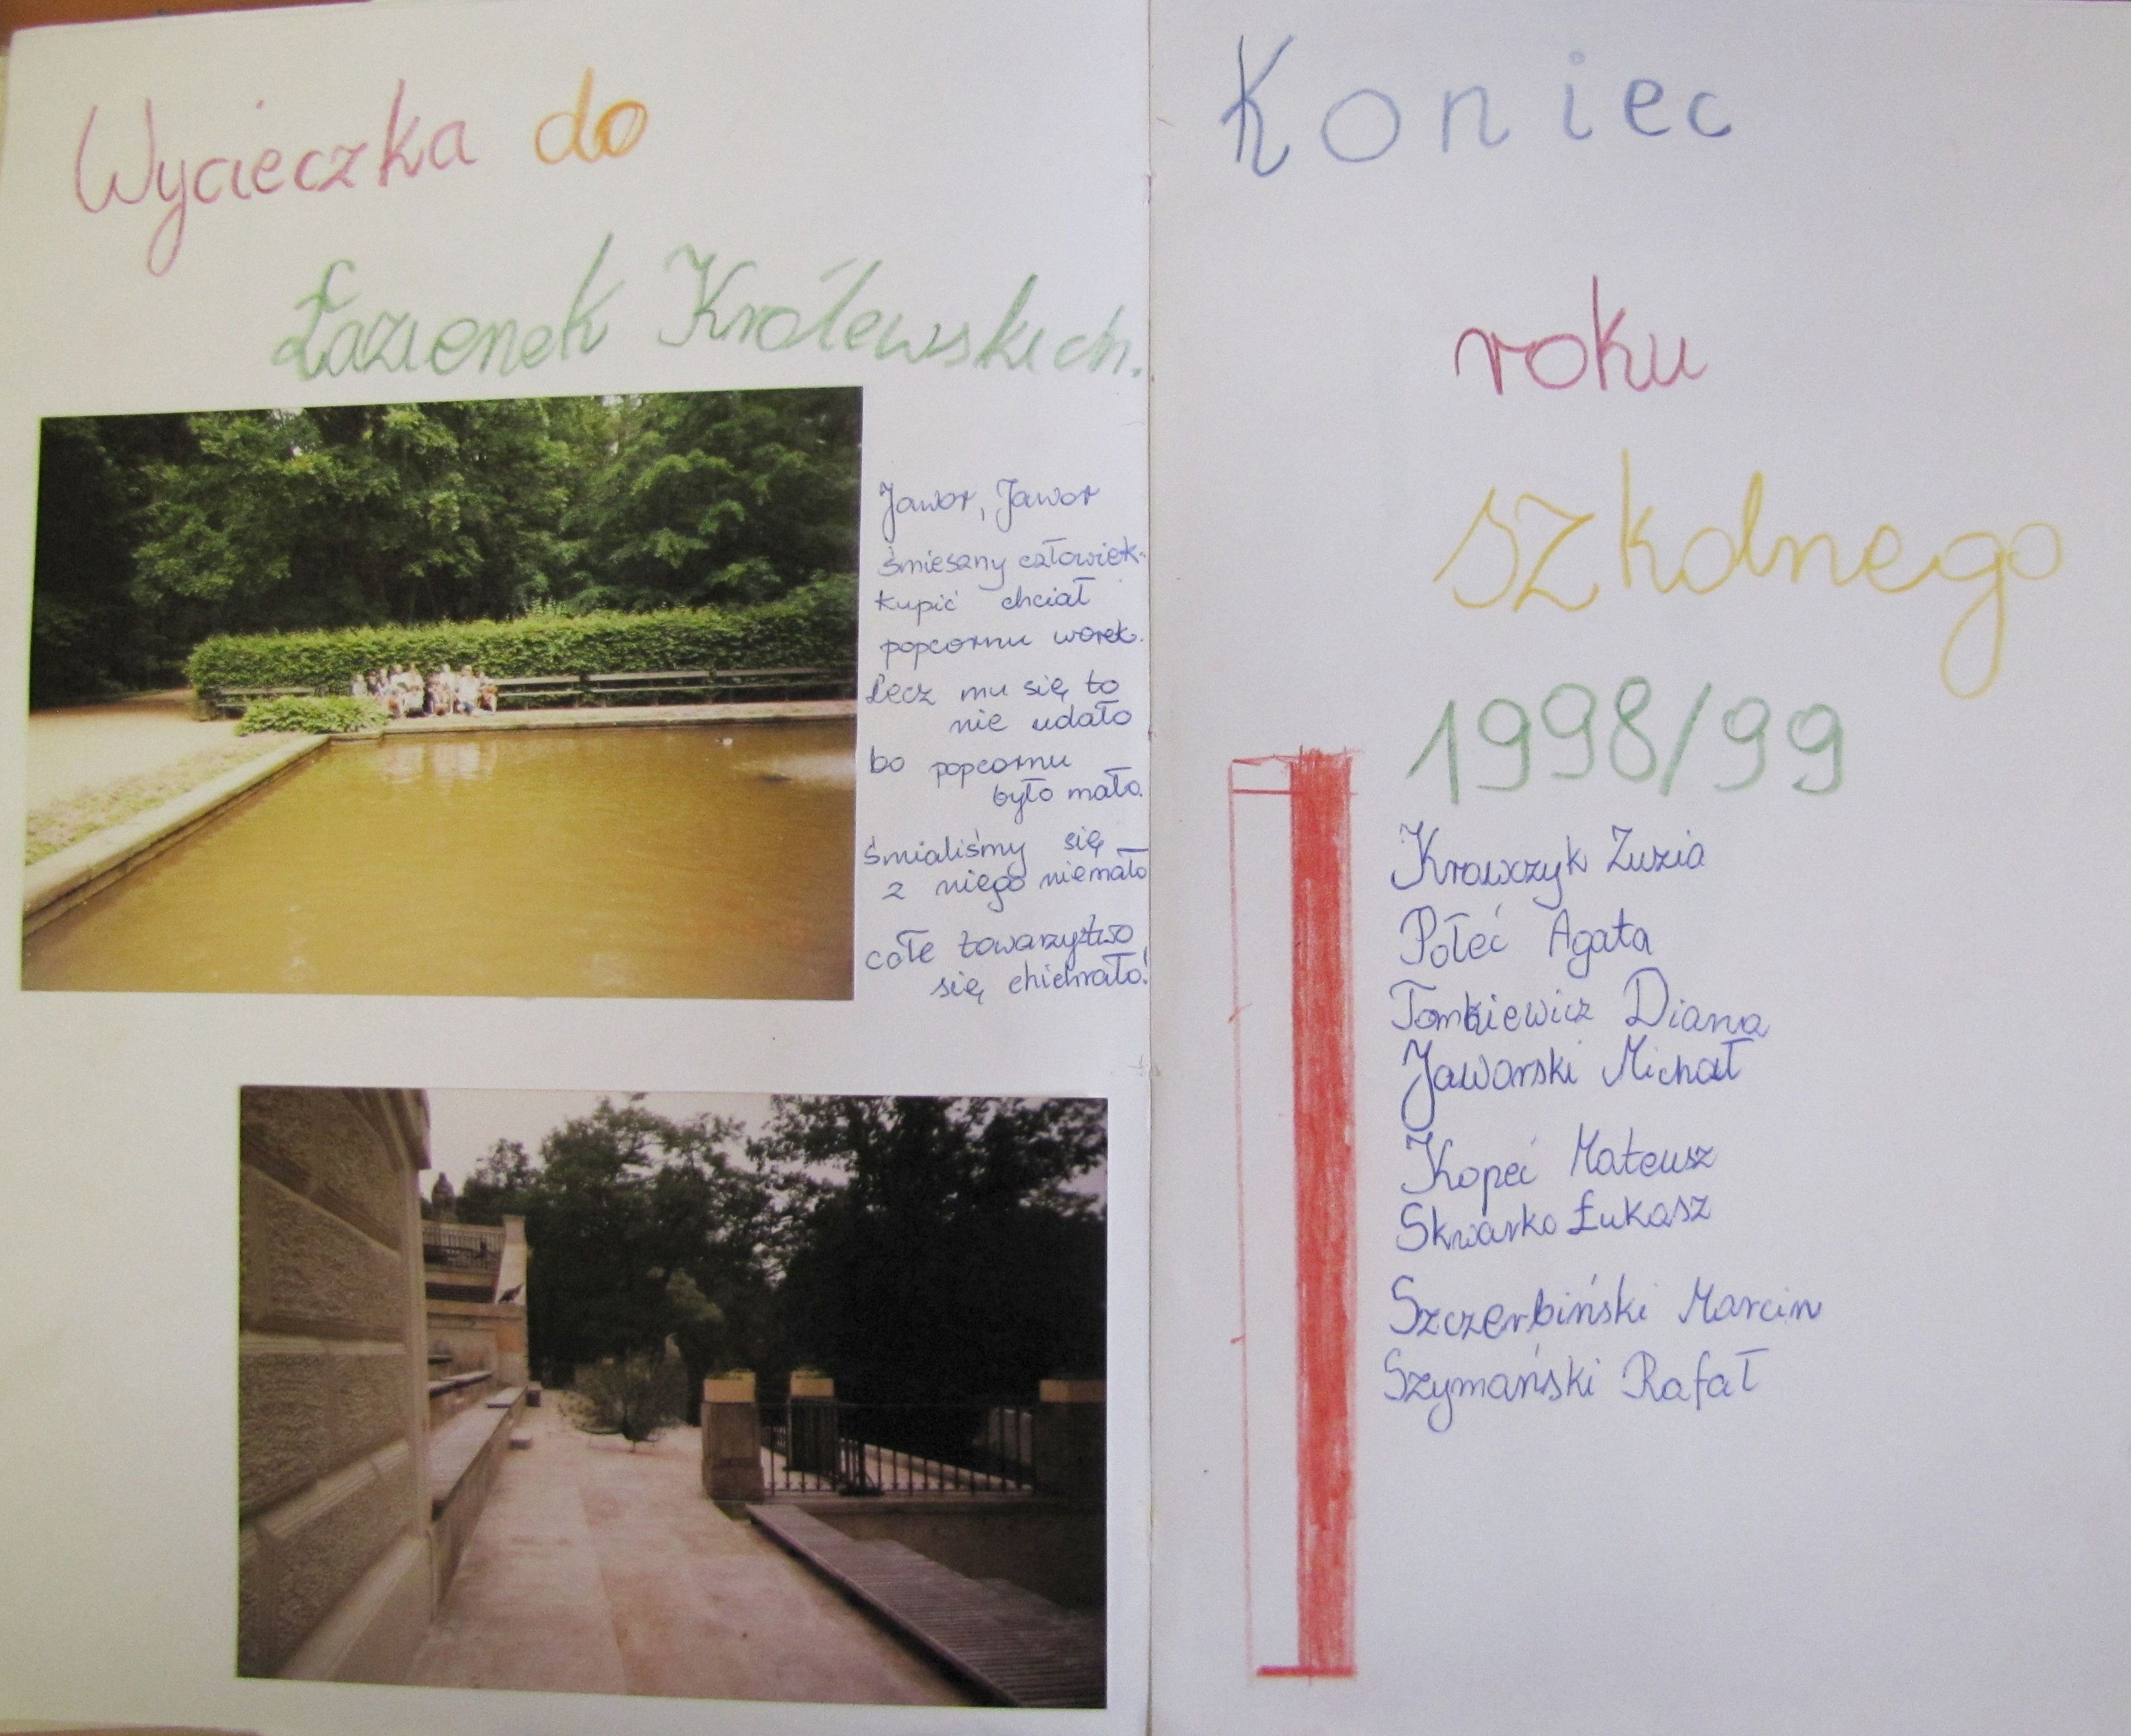 Wycieczka do
Łazienek Królewskich.
Jawor, Jawor
śmieszny człowiek
kupić chciał
popcornu worek.
Lecz mu się to
nie udało
bo popcornu
było mało.
śmialiśmy się
z niego niemało
całe towarzystwo
się chichrało!
Koniec
roku
szkolnego
1998/99
Krawczyk Zuzia
Połeć Agata
Tomkiewicz Diana
Jaworski Michał
Kopeć Mateusz
Skwarko Łukasz
Szczerbiński Marcin
Szymański Rafał